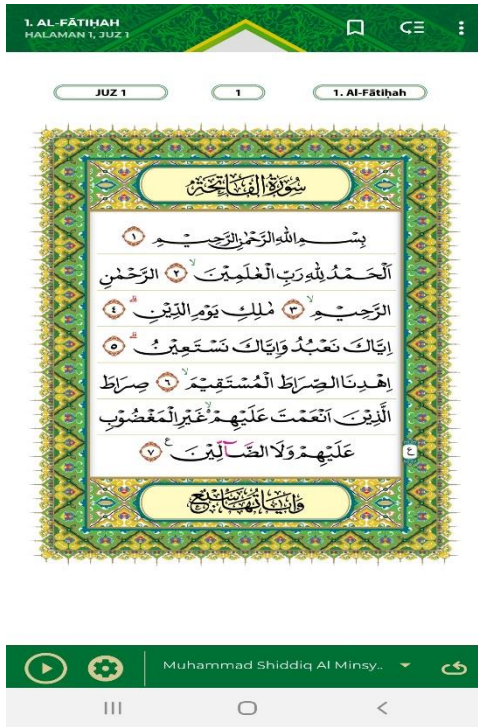 1. AL-FĀTIḤAH
HALAMAN 1, JUZ 1
JUZ 1
1
1. Al-Fātiḥah
سُوْرَةُ الْفَاتِحَةِ
بِسْمِ اللّٰهِ الرَّحْمٰنِ الرَّحِيْمِ ١
اَلْحَمْدُ لِلّٰهِ رَبِّ الْعٰلَمِيْنَۙ ٢ الرَّحْمٰنِ
الرَّحِيْمِۙ ٣ مٰلِكِ يَوْمِ الدِّيْنِۗ ٤
اِيَّاكَ نَعْبُدُ وَاِيَّاكَ نَسْتَعِيْنُۗ ٥
اِهْدِنَا الصِّرَاطَ الْمُسْتَقِيْمَۙ ٦ صِرَاطَ
الَّذِيْنَ اَنْعَمْتَ عَلَيْهِمْ ەۙ غَيْرِ الْمَغْضُوْبِ
عَلَيْهِمْ وَلَا الضَّاۤلِّيْنَࣖ ٧
ع
وَاٰيَاتُهَا سَبْعٌ
Muhammad Shiddiq Al Minsy..